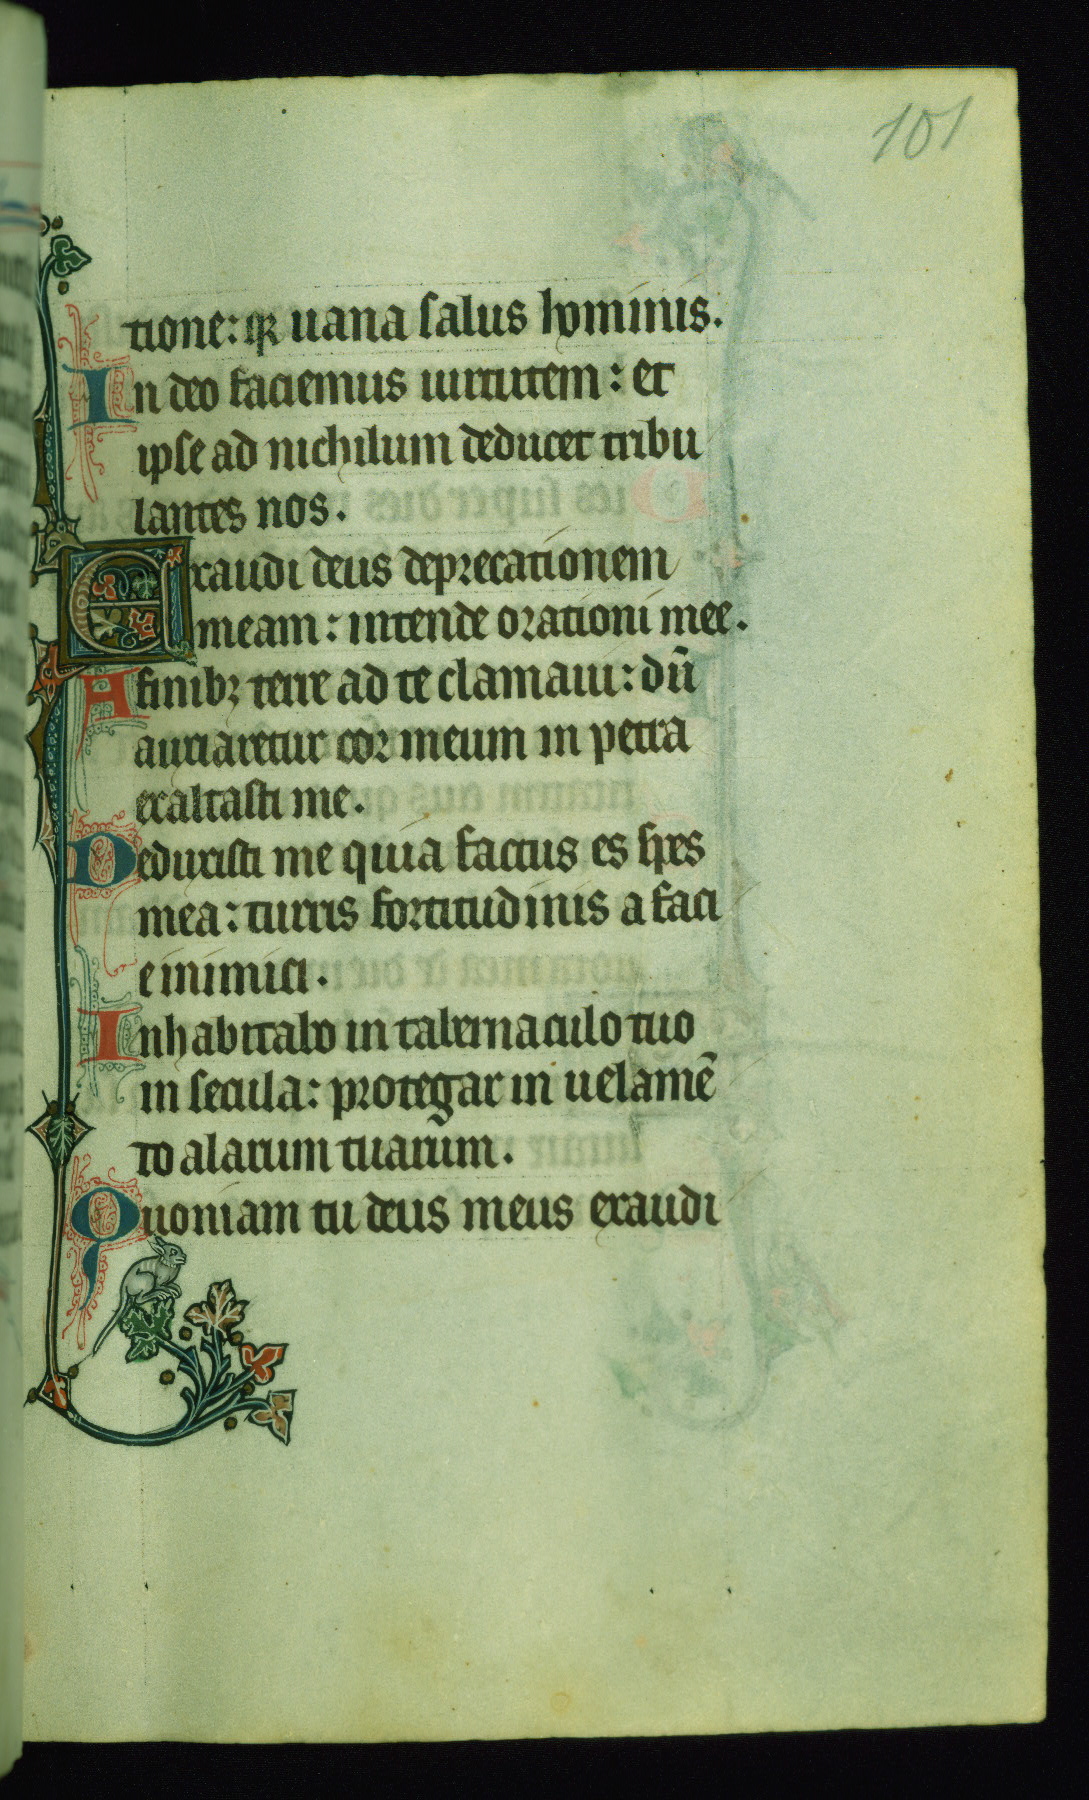 101
tione: qr uana salus hominis.
In deo faciemus uirtutem: et
ipse ad nichilum deducet tribu
lantes nos.
Exaudi deus deprecationem
meam: intende orationi mee.
A finibꝫ terre ad te clamaui: dū
anxiaretur cor meum in petra
exaltasti me.
Deduxisti me quia factus es spes
mea: turris fortitudinis a faci
e inimici.
Inhabitabo in tabernaculo tuo
in secula: protegar in uelamē
to alarum tuarum.
Quoniam tu deus meus exaudi